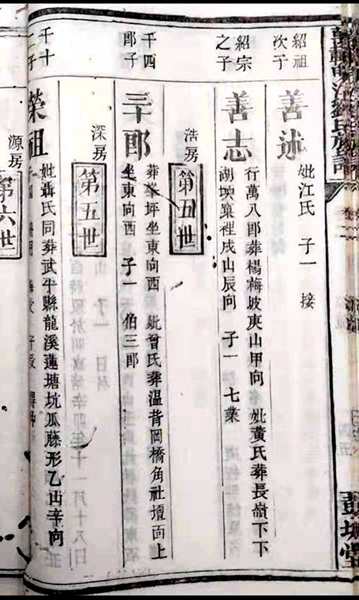 氏族譜
彭城堂
紹祖
次子
善述
妣江氏 子一 接
紹宗
之子
善志
行萬八郎葬楊梅坡庚山甲向 妣黃氏葬長嶺下下
胡坳裡戌山辰向 子一 七
浩房
第五世
千四
郎子
郎
葬坪坐東向西 妣曾氏葬溫背岡橋角社壇面上
坐東向西 子一 伯三郎
深房
第五世
千十
二子
榮祖
妣聶氏同葬武平縣龍溪蓮塘坑瓜藤形乙山辛向
源房
第六世